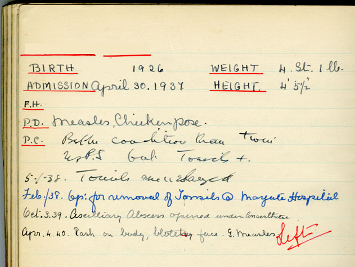 BIRTH 1926 WEIGHT 4 St. 1 lb.
ADMISSION April 30. 1937 HEIGHT. 4' 5½"
F.H.
P.D. Measles, Chickenpox.
P.C. condition than
Tonsils +.
Tonsils
Feb./38. Op: for removal of Tonsils @ Margate Hospital
Oct. 3. 39. Axilliary Abscess opened under
Apr. 4. 40. Rash on body, face. G. Measles
Left